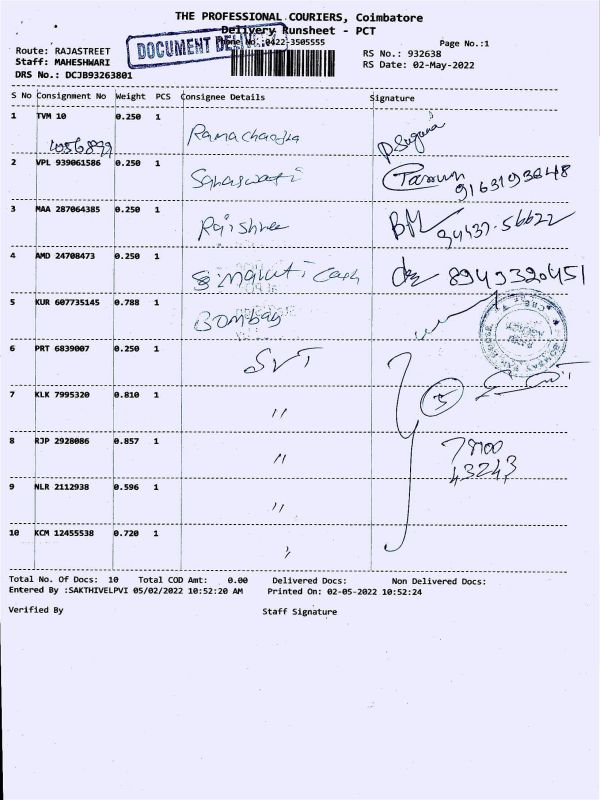 THE PROFESSIONAL COURIERS, Coimbatore
Delivery Runsheet - PCT
DOCUMENT
Phone No.:0422-3505555
Page No.:1
Route: RAJASTREET
RS No.: 932638
Staff: MAHESHWARI
RS Date: 02-May-2022
DRS No.: DCJB93263801
S No Consignment No Weight PCS Consignee Details Signature
1 TVM 10 0.250 1 Ramachandra
4056899
2 VPL 939061586 0.250 1 Saraswati 9163193648
3 MAA 287064385 0.250 1 Rajshree 94437-56622
4 AMD 24708473 0.250 1 Cash 8949320451
5 KUR 607735145 0.788 1 Bombay
6 PRT 6839007 0.250 1 SVT
7 KLK 7995320 0.810 1 " 5
8 RJP 2928086 0.857 1 " 78100
43243
9 NLR 2112938 0.596 1 "
10 KCM 12455538 0.720 1 "
Total No. Of Docs: 10 Total COD Amt: 0.00 Delivered Docs: Non Delivered Docs:
Entered By :SAKTHIVELPVI 05/02/2022 10:52:20 AM Printed On: 02-05-2022 10:52:24
Verified By Staff Signature